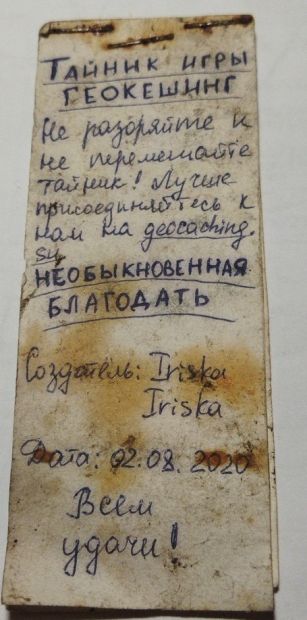 ТАЙНИК ИГРЫ
ГЕОКЕШИНГ
Не разоряйте и
не перемещайте
тайник! Лучше
присоединяйтесь к
нам на geocaching.
su
НЕОБЫКНОВЕННАЯ
БЛАГОДАТЬ
Создатель: Iriska
Iriska
Дата: 02.08.2020
Всем
удачи!